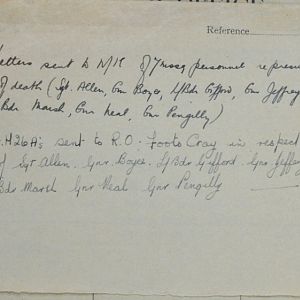 Reference
Letters sent to N/K of 7 mosq personnel re presum
of death (Sgt. Allen, Gnr Boyes, L/Bdr Gifford, Gnr Jeffrey
Bdr Marsh, Gnr Neal, Gnr Pengilly)
A.426A's sent to R.O. Foots Cray in respect
of Sgt Allen. Gnr. Boyes. L/Bdr Gifford. Gnr Jeffery
Bdr Marsh Gnr Neal Gnr Pengilly